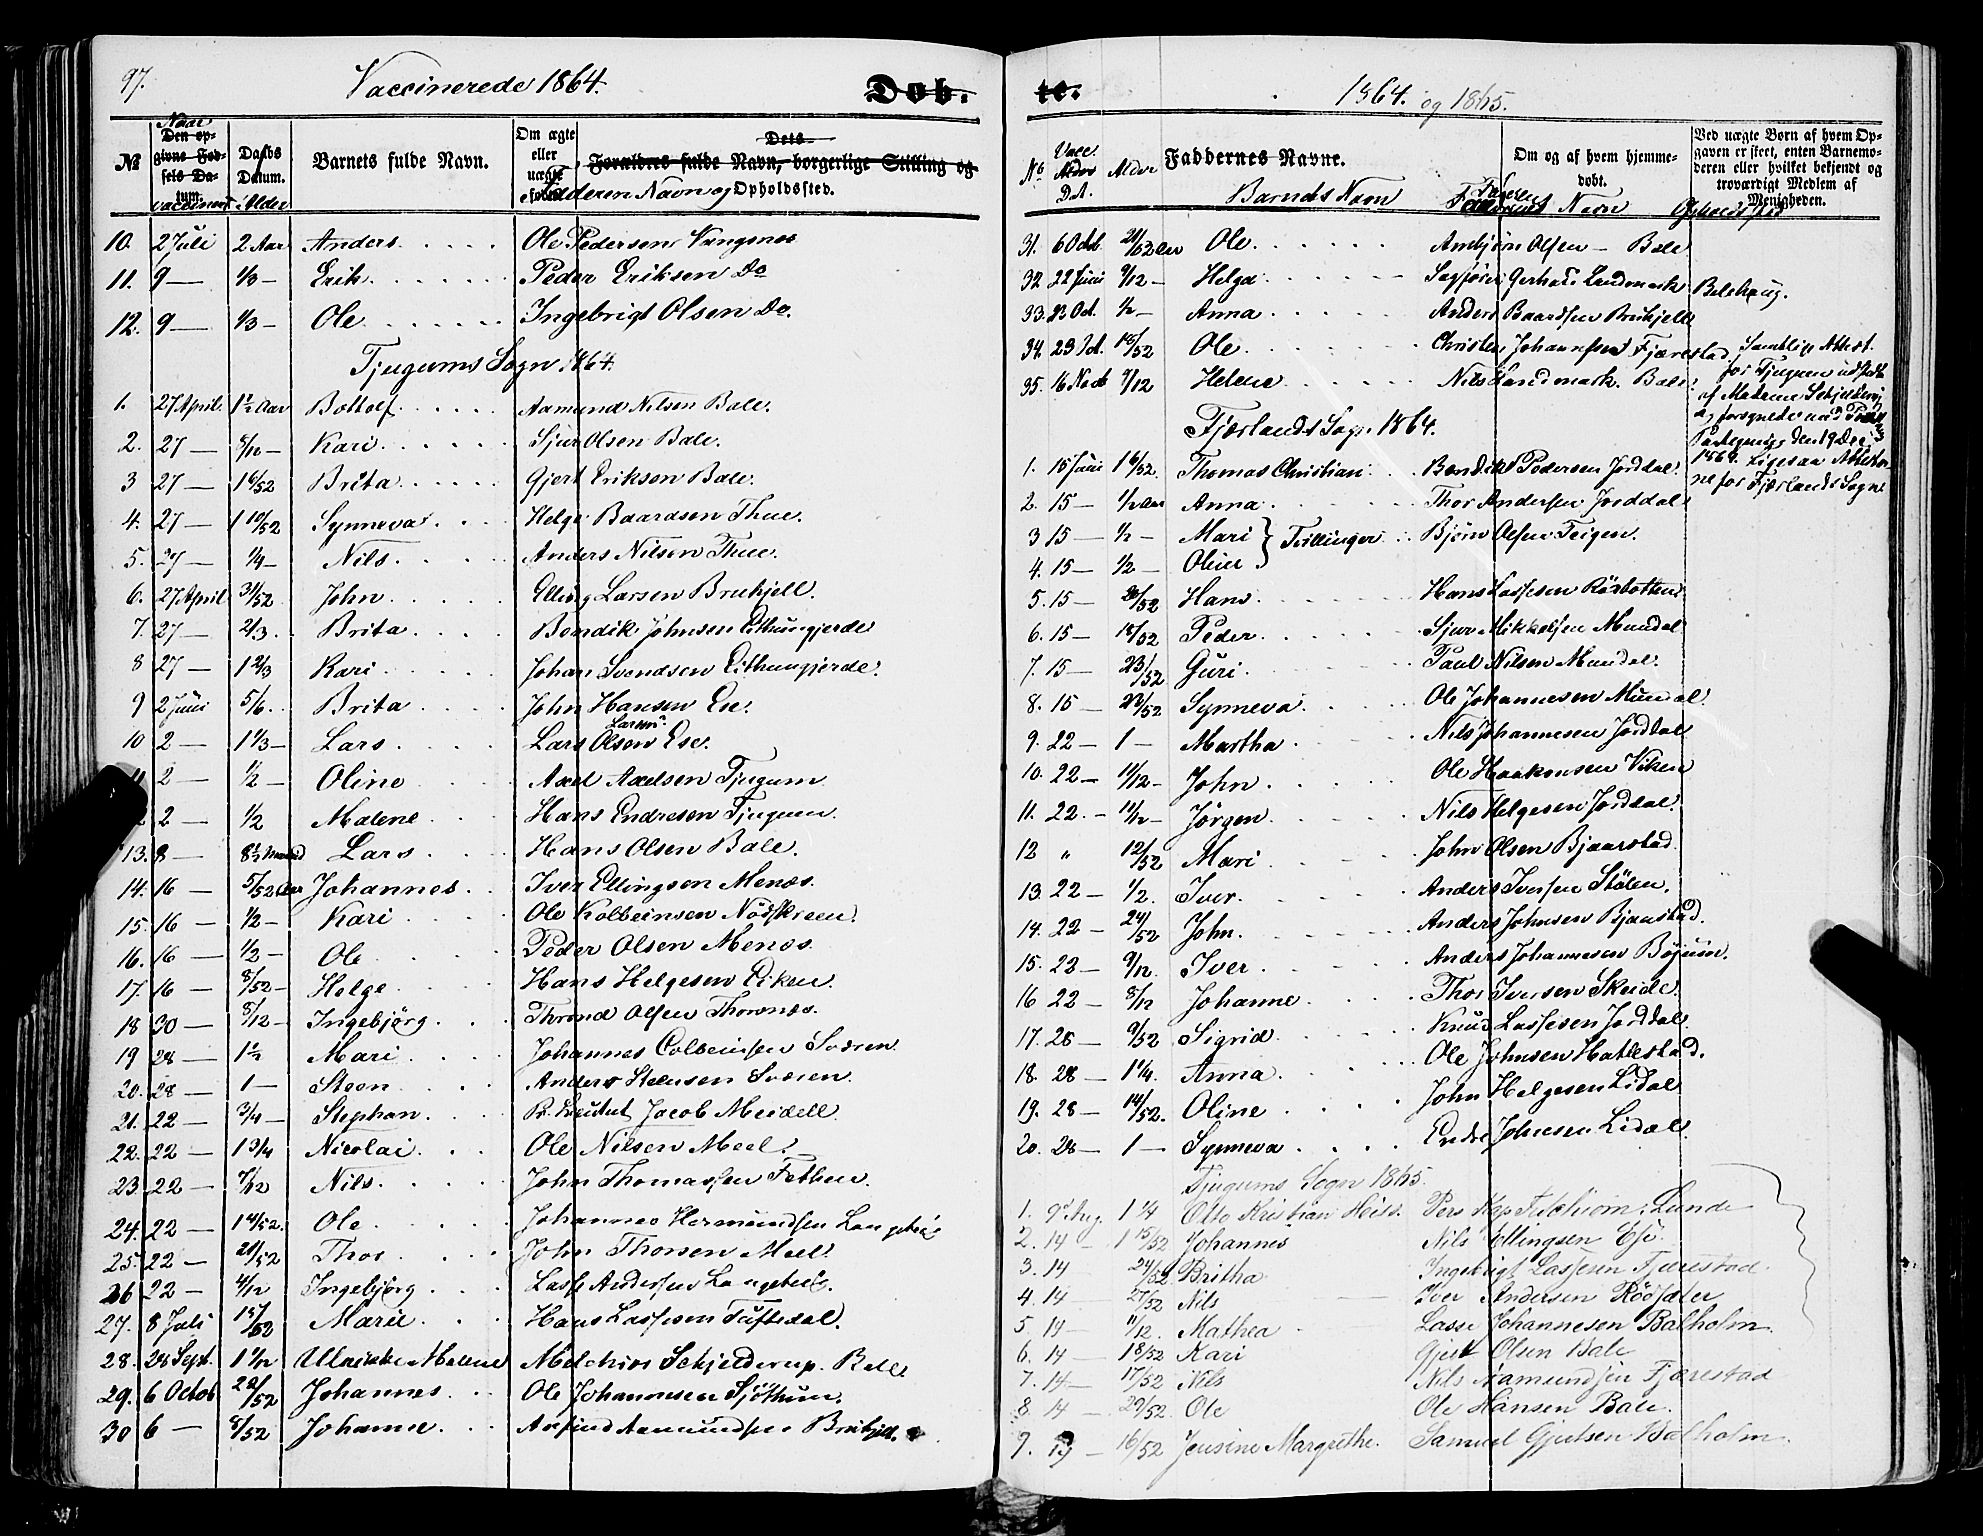 97.
Vaccinerede 1864.
Døb.
№
Naar
Den opgivne Fødsels Datum.
vaccineret
Daabs Datum.
Alder
Barnets fulde Navn.
Om ægte eller uægte født.
Dets Forældres fulde Navn, borgerlige Stilling og Opholdssted.
Fadderen Navn og
10. 2 Juli 2 Aar Anders Ole Pedersen Vangsnes
11. 9 — 1/3 — Erik Peder Eriksen Do
12. 9 — 1/3 — Ole Ingebrigt Olsen Do.
Tjugums Sogn 1864.
1. 27 April. 1½ Aar Bottolf Aamund Nilsen Bale.
2. 27 — 8/12 — Kari Sjur Olsen Bale.
3 27 — 16/52 Brita Gjert Eriksen Bale.
4. 27 — 1 10/52 Synneva Helge Baardsen Thue.
5. 27 — 1/4 — Nils Anders Nilsen Thue.
6. 27 April 31/52 John Elling Larsen Brekjell.
7. 27 — 2/3 Brita Bendik Johnsen Eithungjerde
8 27 — 1 2/3 Kari Johan Svendsen Eithungjerde.
9 2 Juni 5/6. Brita John Hansen Ese.
10 2 — 1 1/3 — Lars Lars Olsen Ese.
Larsen
11 2 — 1/2 — Oline Axel Axelsen Tjugum
2 — 1/2 Malene Hans Endresen Tjugum.
13. 8 — 8½ Maaned Lars Hans Olsen Bale.
14. 16 — 5/52 Aar Johannes Iver Ellingsen Menes.
15. 16 — 1/2 — Kari Ole Kolbeinsen Nødskreen.
16. 16 — 1/2 — Ole Peder Olsen Menes.
17. 16 — 8/52 — Helge Hans Helgesen Eiken.
18 30 — 8/12 — Ingebjörg Thrond Olsen Thorsnes.
19 28 — 1½ Mari Johannes Colbeinsen Sværen
20. 28 — 1 — Steen Anders Steensen Sværen.
21. 22 — 3/4 — Stephan Jacob Meidell
22. 22 — 1 3/4 Nicolai Ole Nilsen Meel.
23. 22 — 7/12 Nils John Thomassen Fethun.
24. 22 — 1 14/52 Ole Johannes Hermundsen
25. 22 — 21/52 Thor John Thorsen Meel.
26 22 — 4/12 Ingebjörg Lasse Andersen
27. 8 Juli 15/52 Marie Hans Lassesen Tuftedal.
28. 28 Sept. 1 1/12 Ulrikke Malene Melchior Schjelderup. Bale
29. 6 Octob 22/52 Johannes Ole Johannesen Sjøthun.
30 6 — 8/52 Johanne Arfind Aamundsen
te.
1864. og 1865.
No
Vacc. Alder D.A.
Alder
Faddernes Navne.
Barnets Navn
Om og af hvem hjemmedøbt.
Faderens Navn
Ved uægte Børn af hvem Opgaven er skeet, enten Barnemoderen eller hvilket bekjendt og troværdigt Medlem af Menigheden.
Opholdssted
31. 6 Octob 21/52 Aar Ole Ambjörn Olsen — Bale
32. 22 Juni 9/12 — Helga Sagförer Gerhard Landmark Balehaug.
33. 22 Oct. 1/2 — Anna Anders Baardsen Brekjell
34. 23 Oct. 18/52 Ole Christen Johannesen Fjærestad
35. 16 Novb 7/12 Helene Nils Landmark. Bale.
Samtlige Attest. for Tjugum udstedt af Madame Schjelderup og forsynede med Paategning den 19 Dec. 1864. Ligesaa Attesterne for Fjærlands Sogn
Fjærlands Sogn 1864.
1. 15 Juni 16/52. Thomas Christian Bendik Pedersen Jorddal.
2. 15 — 1/2 Aar Anna Thor Andersen Jorddal
3 15 — 1/2 — Mari } Tvillinger Bjørn Olsen Teigen.
4. 15 — 1/2 — Oline
5. 15 — 28/52 Hans Hans Lassesen
6. 15 — 18/52 Peder Sjur Mikkelsen Mundal
7. 15 — 23/52 Guri Paul Nilsen Mundal.
8. 15 — 28/52 Synneva Ole Johannesen Mundal.
9. 22 — 1 — Martha Nils Johannesen Jorddal
10. 22 — 11/12 — John Ole Haakonsen Viken
11. 22. — 11/12 — Jörgen Nils Helgesen Jorddal.
12 " 12/52 Mari John Olsen Bjaarstad.
13. 22 — 1/2. Iver Anders Iversen Stølen.
14. 22 — 24/52 John. Anders Johnsen Bjaastad.
15. 22 — 9/12. Iver Anders Johannesen Bøjum.
16 22 — 8/12 Johanne Thor Iversen Skeide.
17. 28 — 9/52 Sigrid Knud Lassesen Jorddal.
18. 28 — 1 1/4. Anna Ole Johnsen Hatlestad.
19. 28 — 14/52. Oline John Helgesen Lidal
20. 28 — 1 — Synneva Endre Johnsen Lidal.
Tjugums Sogn 1865.
1. 9 Aug. 1 1/4 Otto Kristian Lunde
2. 14 — 1 15/52 Johannes Nils Ellingsen Ese.
3. 14 24/52 Britha Ingebrigt Lassesen Fjærestad.
4. 14 27/52 Nils Iver Andersen Rødsæter
5. 14 — 11/12. Mathea Lasse Johannesen Balholm.
6. 14 — 18/52 Kari Gjert Olsen Bale
7. 14 — 17/52 Nils Nils Aamundsen Fjærestad
8. 14 — 29/52. Ole Ole Hansen Bale.
9. 19 — 16/52 Jensine Margrethe. Samuel Gjertsen Balholm.